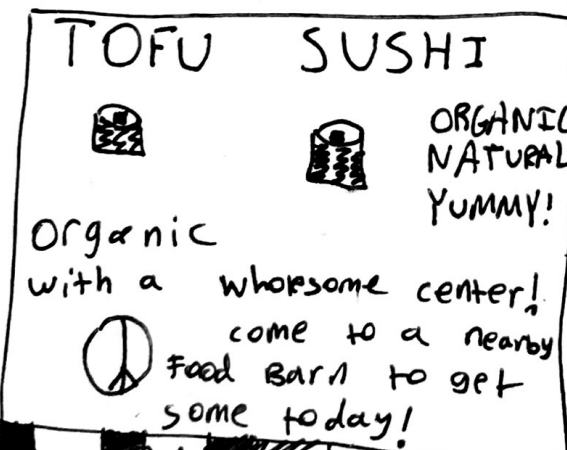 TOFU SUSHI
ORGANIC
NATURAL
YUMMY!
organic
with a wholesome center!
come to a nearby
Food Barn to get
some today!